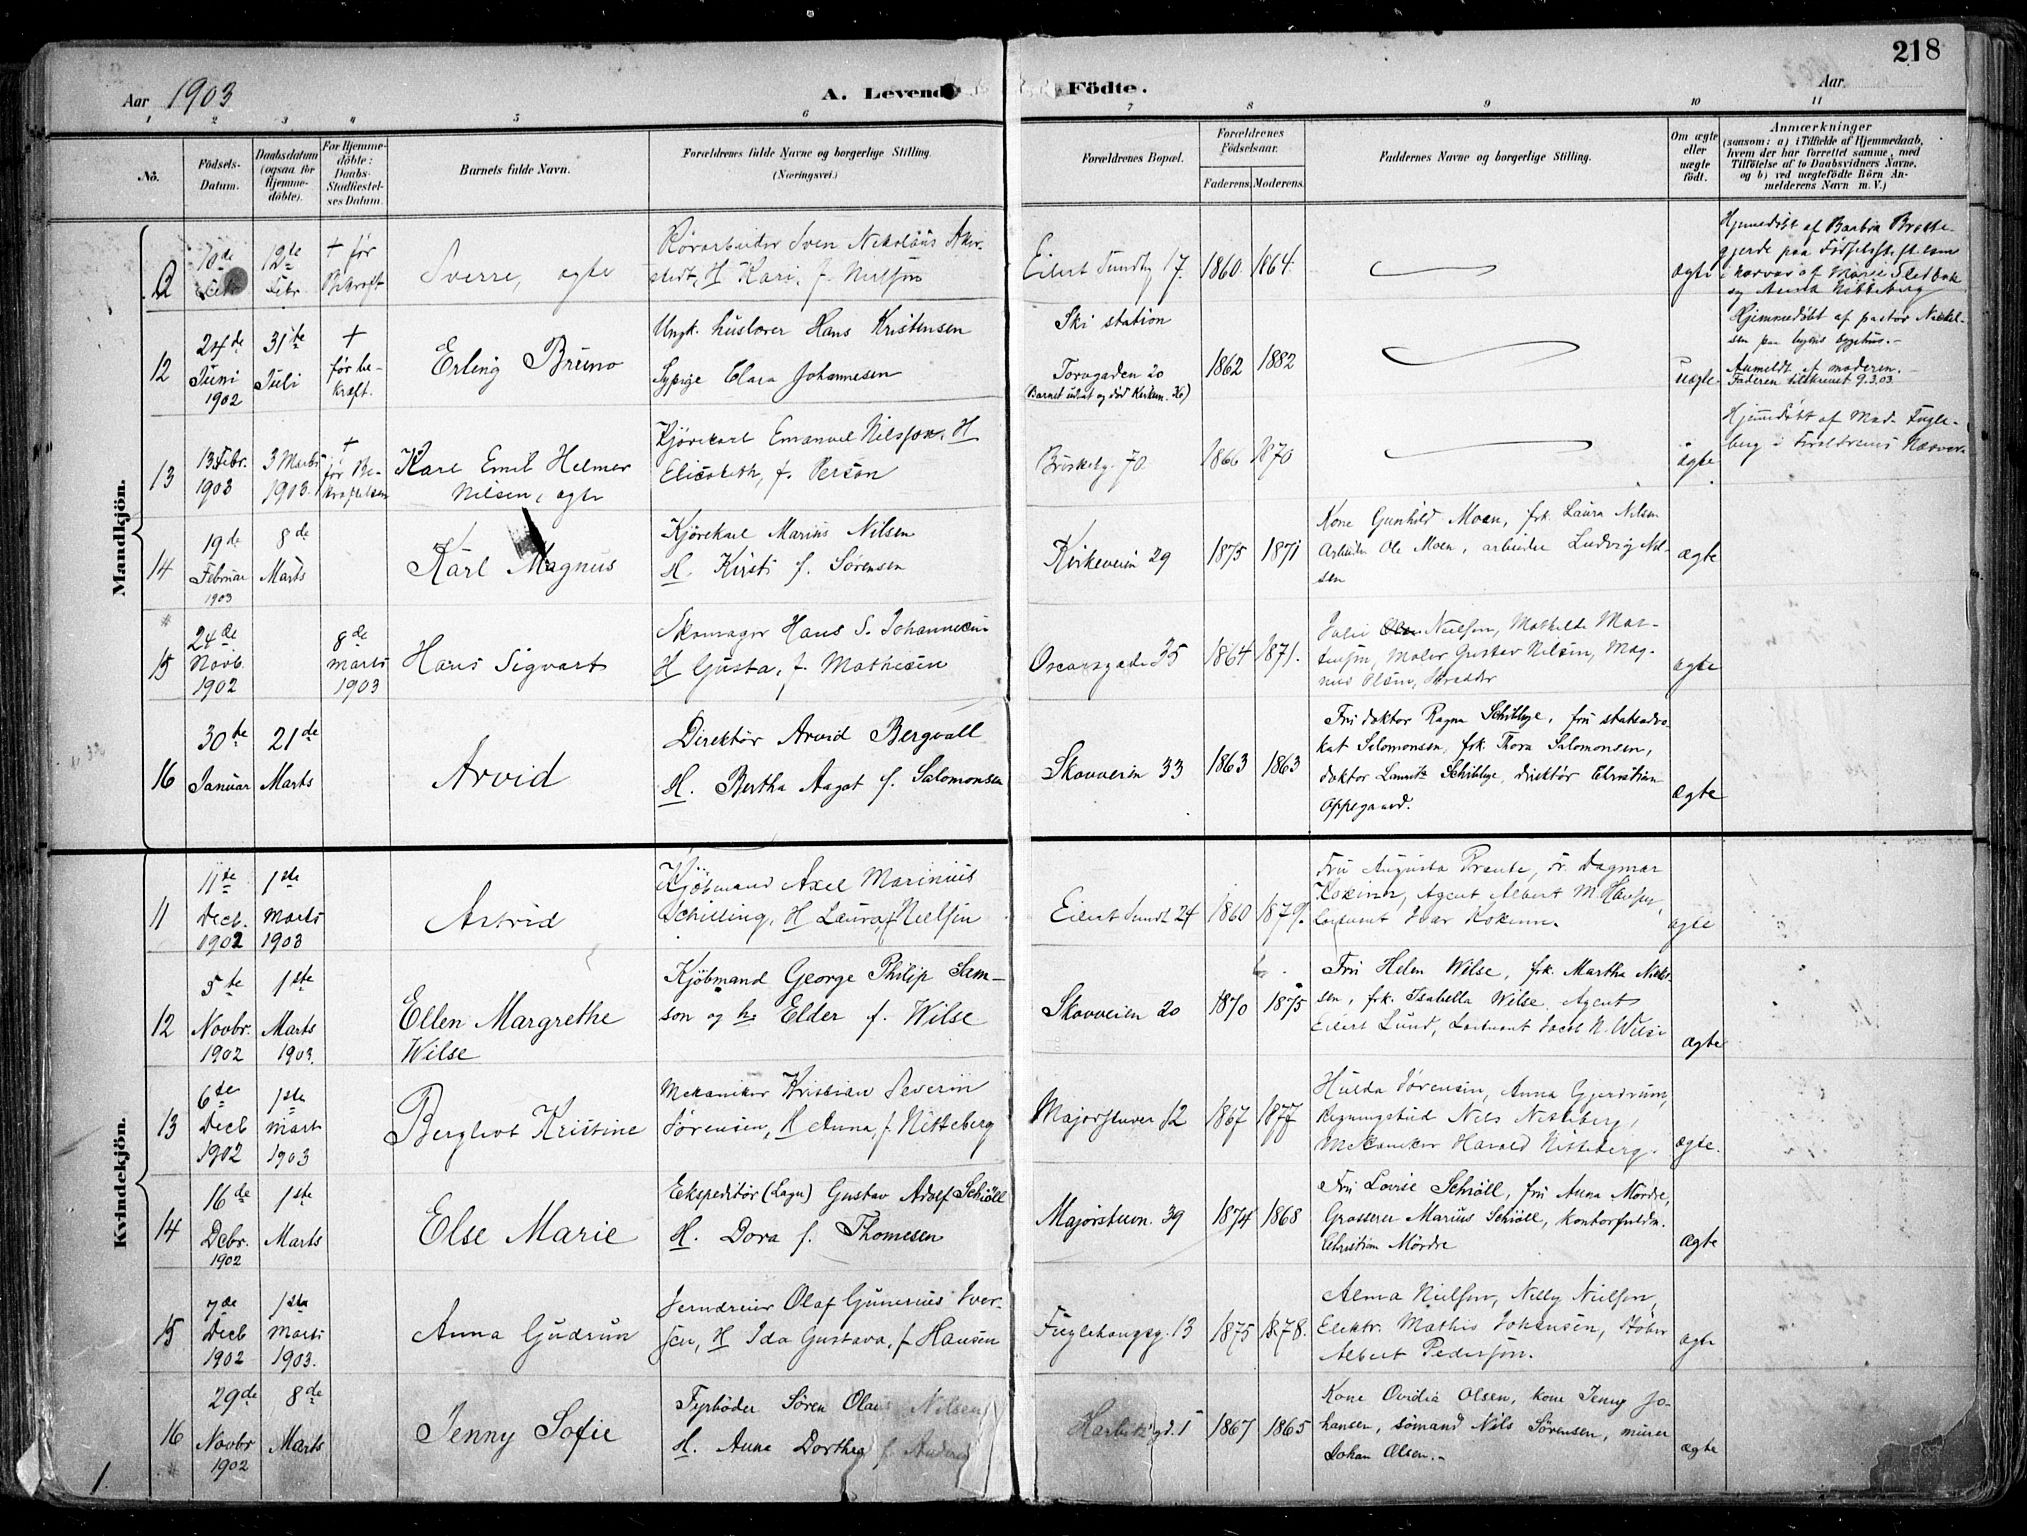 218
Aar 1903
A. Levende Födte.
Aar
1 2 3 4 5 6 7 8 9 10 11
No.
Födsels-Datum.
Daabsdatum (ogsaa for Hjemme-döbte).
For Hjemme-döbte: Daabs-Stadfæstel-ses Datum.
Barnets fulde Navn.
Forældrenes fulde Navne og borgerlige Stilling.
(Næringsvei.)
Forældrenes Bopæl.
Forældrenes Födselsaar.
Faderens. Moderens.
Faddernes Navne og borgerlige Stilling.
Om ægte eller uægte födt.
Anmærkninger
(saasom: a) i Tilfælde af Hjemmedaab,
hvem der har forrettet samme, med
Tilföielse af to Daabsvidners Navne,
og b) ved uægtefödte Börn An-
melderens Navn m. V.)
Mandkjön.
10de Febr
12te Febr
+ før Bekræft
Sverre, ægte
Rørarbeider Sven Nikolaus Aker-
stedt, H Kari, f. Nielson
Eilert Sundtsg 17.
1860 1864
ægte
Hjemmedøbt af
paa Fødselsstiftelsen
i nærvær af Marie
og Anna Nitteberg
12
24de Juni 1902
31te Juli
+ før be-kræft.
Erling Bruno
Ungk. huslærer Hans Kristensen
Sypige Clara Johannesen
Ski station
Torvgaden 20
(Barnet udsat og død Kirkenv. 26)
1862 1882
uægte
Hjemmedøbt af pastor
sen paa sygehus.-
Anmeldt af moderen.-
Faderen tilskrevet 9.3.03
13
13 Febr. 1903
3 Marts 1903
+ før Be-kræftelsen
Karl Emil Helmer
Nilsen, ægte
Kjørekarl Emanuel Nilsson, H
Elisabeth, f. Person
Briskebg. 70.
1866 1870
ægte
Hjemmedøbt af Mad. Fugle-
berg i Forældrenes Nærvær.
14
19de Februar 1903
8de Marts
Karl Magnus
Kjørekarl Marius Nilsen
H. Kirsti f. Sørensen
Kirkeveien 29
1875 1871
Kone Gunhild Moen, frk. Laura Nilsen
Arbeider Ole Moen, arbeider Ludvig Nil-
sen
ægte
15
24de Novb. 1902
8de marts 1903
Hans Sigvart
Skomager Hans S. Johannesen
H Gusta, f. Mathisen
Oscarsgade 35
1864 1871.
Julie Nielson, Mathilde Mar-
tinson, Maler Gustav Nilsen, Mag-
nus Olsen, Skrædder
ægte
16
30te Januar
21de Marts
Arvid
Direktør Arvid Bergvall
H. Bertha Aagot f. Salomonsen
Skovveien 33
1863 1863
Fru doktor Ragna Schibbye, fru statsadvo-
kat Salomonsen, frk. Thora Salomonsen,
doktor Lauritz Schibbye, direktør Christian
Oppegaard.
ægte
Kvindekjön.
11
11te Decb. 1902
1ste Marts 1903
Astrid
Kjøbmand Axel Marinius
Schilling, H Laura, f. Nielsen
Eilert Sundt 24
1860 1879.
Fru Augusta Prante, Fr. Dagmar
Agent Albert M. Hansen,
Løitnant Ivar
ægte
12
5te Novbr. 1902
1ste Marts 1903.
Ellen Margrethe
Wilse
Kjøbmand George Philip Sam-
son og h. Elder f. Wilse
Skovveien 20
1870 1875
Fru Helen Wilse, frk. Martha Niel-
sen, frk. Isabella Wilse, Agent
Eilert Lund, Løitnant Jacob N. Wilse
ægte
13
6te Decb 1902
1ste Mart 1903
Bergliot Kristine
Mekaniker Kristian Severin
Sørensen, H Anna, f. Nitteberg
Majorstuver 12
1867 1877
Hulda Sørensen, Anna Gjerdrum,
Nils Nitteberg,
Mekaniker Harald Nitteberg.
ægte.
14
16de Debr. 1902
1ste Marts
Else Marie
Eekspeditør (Lager) Gustav Adolf Schiöll
H. Dora f. Thomesen
Majorstuen. 39
1874 1868
Fru Lovise Schiöll, fru Anna Mørdre,
Grosserer Marius Schiöll, kontorfuldm.
Christian Mørdre
ægte
15
7de Decb 1902
1ste Marts 1903.
Anna Gudrun
Jerndreier Olaf Gunerius Iver-
sen, H Ida Gustava, f Hansen
Fuglehaugsg. 13
1875 1878.
Alma Nielson, Nelly Nielson,
Elektr. Mathis Johansen, Støber
Albert Pederson.
ægte
16
29de Novbr 1902
8de Marts
Jenny Sofie
Fyrbøder Søren Olaus Nilsen
H. Anna Dorthea f.
Harbitzgd. 1
1867 1865
Kone Ovidia Olsen, kone Jenny Jo-
hansen, sømand Nils Sørensen, murer
Johan Olsen.-
ægte